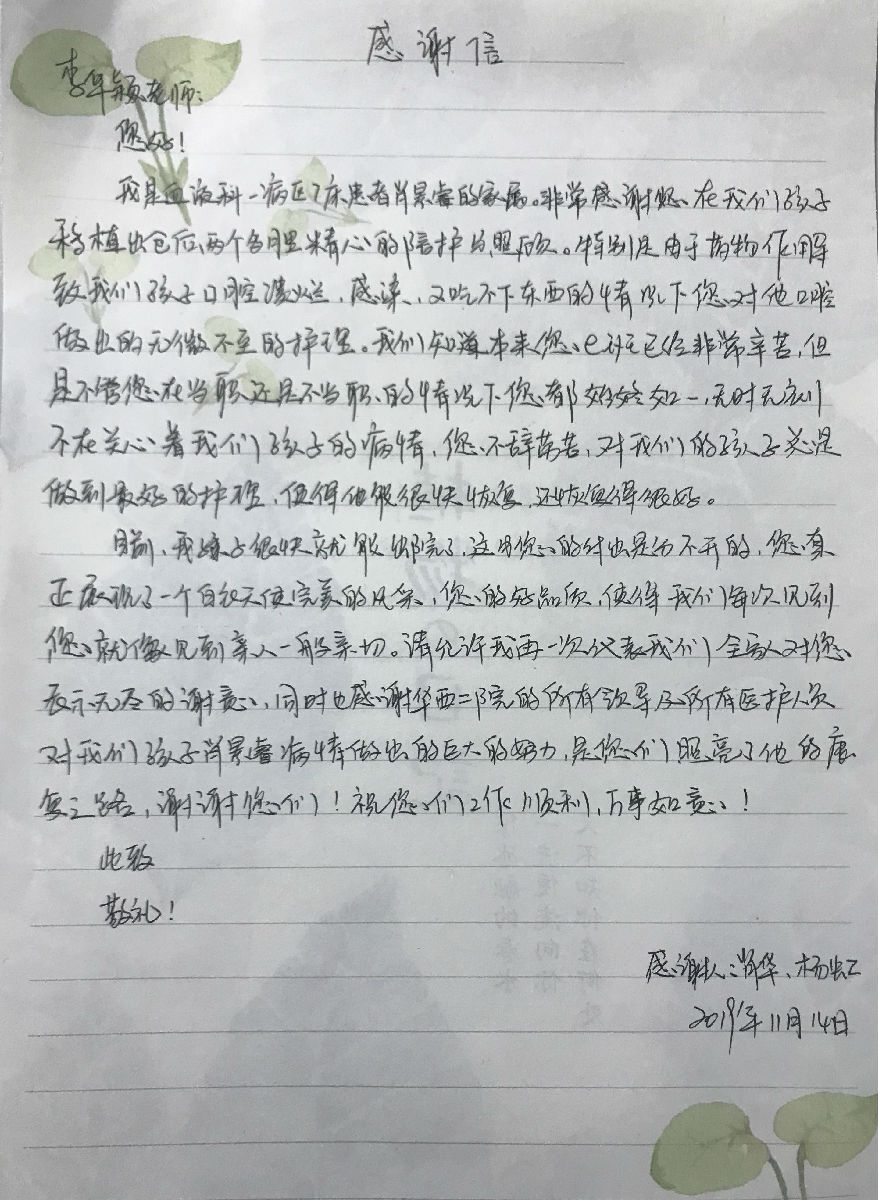 感谢信
李华颖老师:
您好!
我是血液科一病区7床患者肖景睿的家属。非常感谢您、在我们孩子
移植出仓后两个多月里精心的陪护与照顾。特别是由于药物作用导
致我们孩子口腔溃烂、感染、又吃不下东西的情况下您对他口腔
做出的无微不至的护理。我们知道本来您、已经非常辛苦,但
是不管您在当职还是不当职的情况下您都始终如一,无时无刻
不在关心着我们孩子的病情,您不辞劳苦,对我们的孩子总是
做到最好的护理,使得他能很快恢复,还恢复得很好。
目前,我孩子很快就能出院了,这与您的付出是分不开的,您真
正展现了一个白衣天使完美的风采,您的好品质,使得我们每次见到
您就像见到亲人一般亲切。请允许我再一次代表我们全家人对您
表示无尽的谢意,同时也感谢华西二院的所有领导及所有医护人员
对我们孩子肖景睿病情做出的巨大的努力,是您们照亮了他的康
复之路,谢谢您们!祝您们工作顺利,万事如意!
此致
敬礼!
感谢人:肖华、杨虹
2019年11月14日